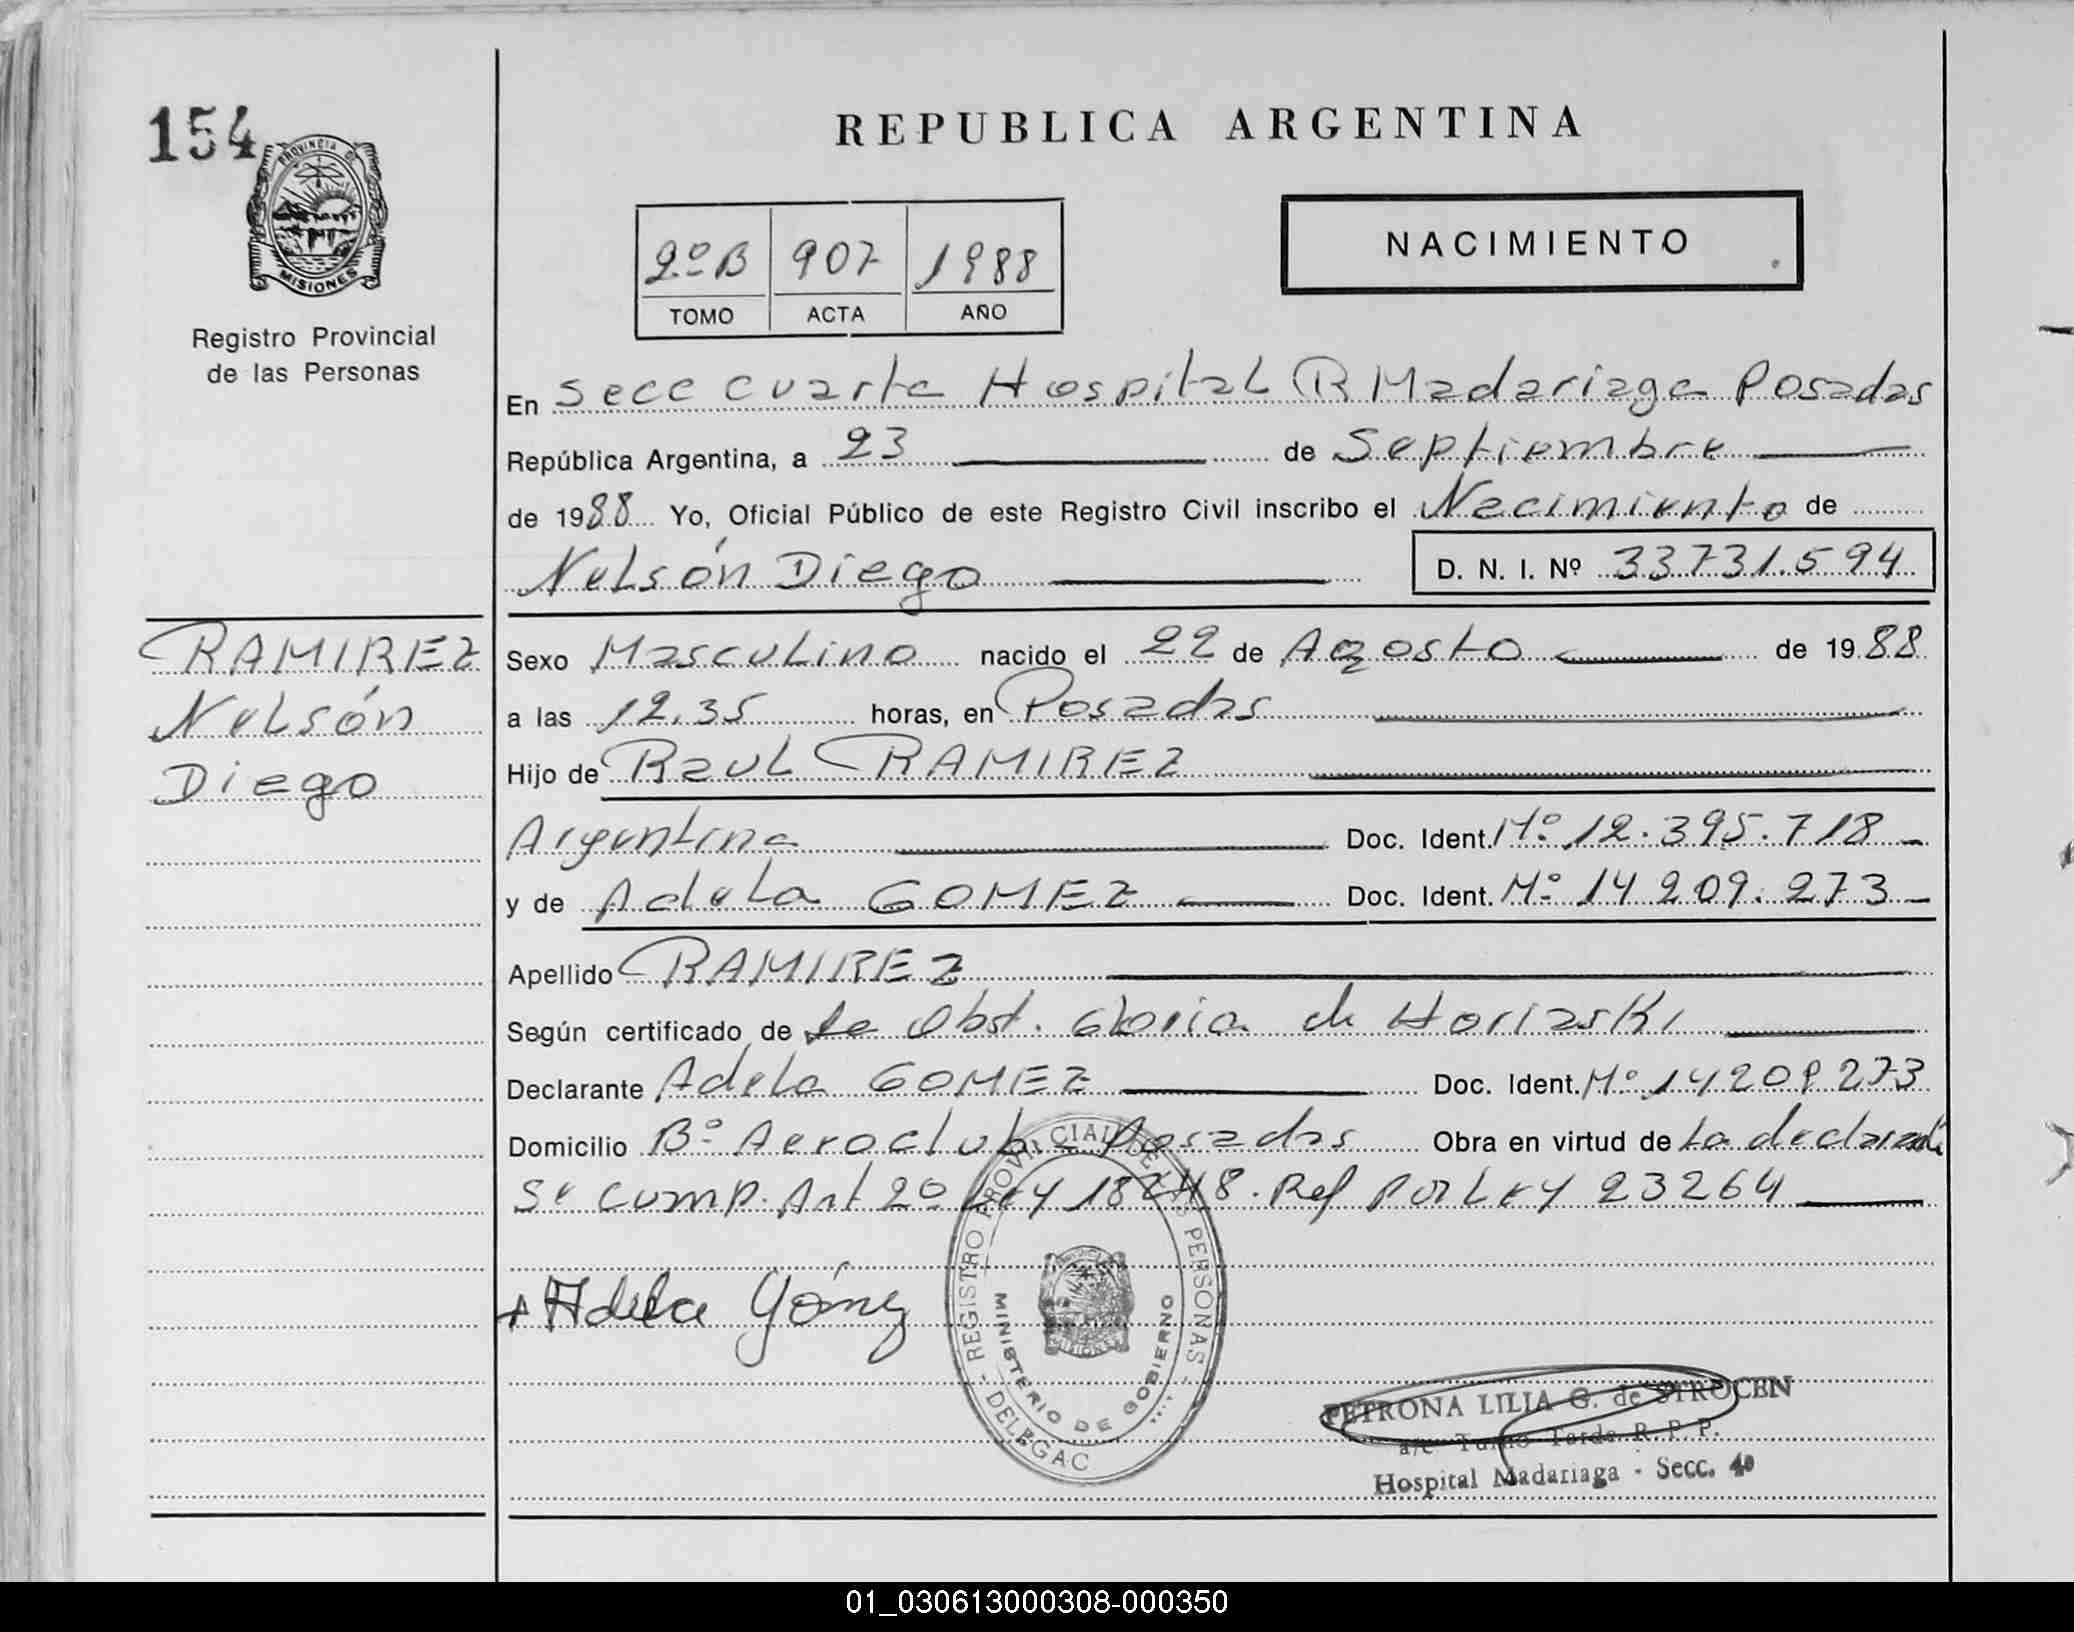 154
PROVINCIA DE
MISIONES
Registro Provincial
de las Personas
RAMIREZ
Nelsón
Diego
REPUBLICA ARGENTINA
2º B 907 1988
TOMO ACTA AÑO
NACIMIENTO
En Secc cuarta Hospital R Madariaga Posadas
República Argentina, a 23 de Septiembre
de 1988 Yo, Oficial Público de este Registro Civil inscribo el Nacimiento de
Nelsón Diego D. N. I. Nº 33731.594
Sexo Masculino nacido el 22 de Agosto de 1988
a las 12.35 horas, en Posadas
Hijo de Raul RAMIREZ
Argentina Doc. Ident. Mº 12.395.718
y de Adela GOMEZ Doc. Ident. Mº 14 209.273
Apellido RAMIREZ
Según certificado de la Obst. Gloria de Horiaski
Declarante Adela GOMEZ Doc. Ident. Mº 14209273
Domicilio Bº Aeroclub Posadas Obra en virtud de La declaració
Se cump. Art 2º Ley 18248. Ref por Ley 23264
Adela Gómez
REGISTRO PROVINCIAL DE LAS PERSONAS - DELEGAC
MINISTERIO DE GOBIERNO
MISIONES
PETRONA LILIA G. de STROCEN
a/c Turno Tarde R. P. P.
Hospital Madariaga - Secc. 4º
01_030613000308-000350